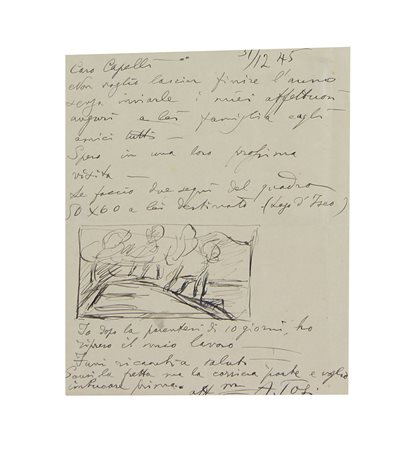 31/12 45
Caro Capelli —
Non voglio lasciar finire l'anno
senza inviarle i miei affettuosi
auguri a lei famiglia e agli
amici tutti —
Spero in una loro prossima
visita —
Le faccio due segni del quadro
50 x 60 a lei destinato (Lago d'Iseo)
Io dopo la parentesi di 10 giorni, ho
ripreso il mio lavoro
saluti
Scusi la fretta ma la corriera parte e voglio
imbucare prima.
A. Tosi